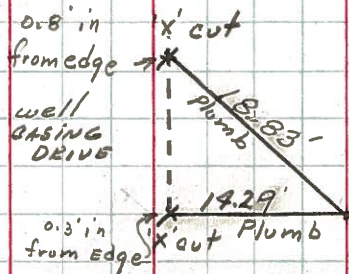 0.8' in
from edge
'X' cut
well
CASING
DRIVE
18.83'
Plumb
14.29'
Plumb
0.3' in
from Edge
'X' cut